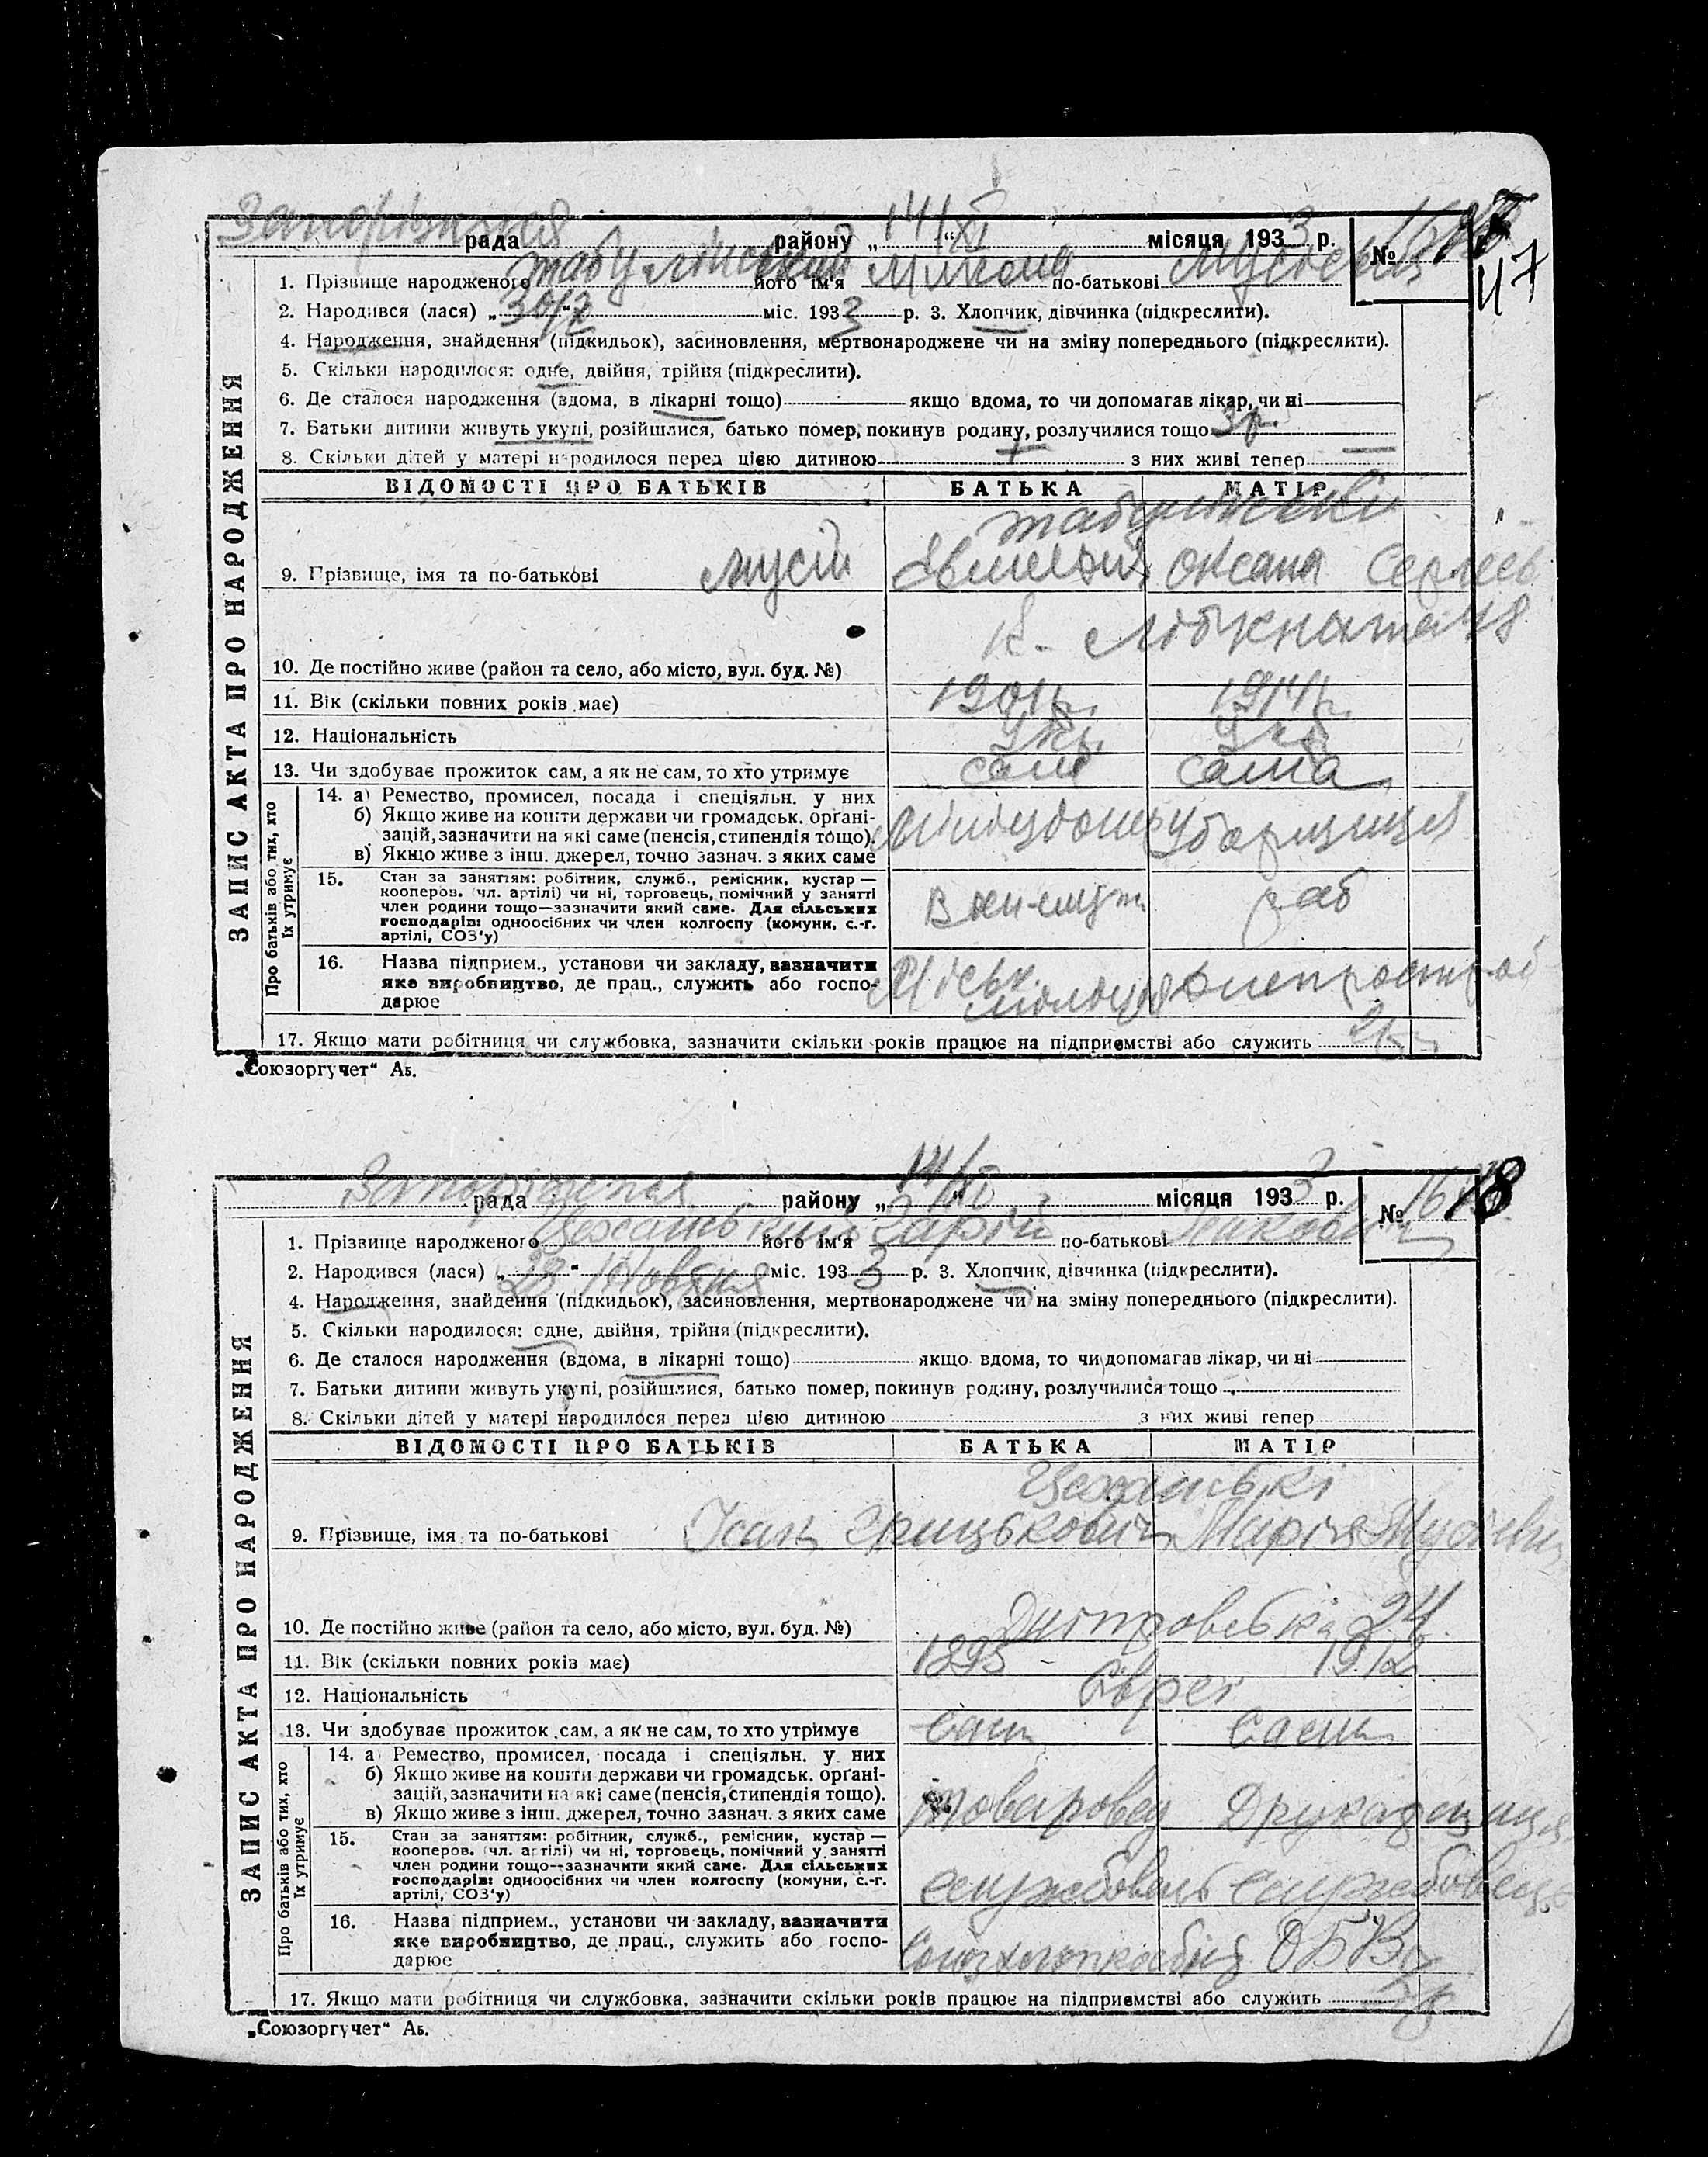 Запорізька рада району „14/XI“ місяця 1933 р. №
47
1. Прізвище народженого його ім'я Микола по-батькові Мусієвич
2. Народився (лася) „30/X“ міс. 1933 р. 3. Хлопчик, дівчинка (підкреслити).
4. Народження, знайдення (підкидьок), засиновлення, мертвонароджене чи на зміну попереднього (підкреслити).
5. Скільки народилося: одне, двійня, трійня (підкреслити).
6. Де сталося народження (вдома, в лікарні тощо) якщо вдома, то чи допомагав лікар, чи ні
7. Батьки дитини живуть укупі, розійшлися, батько помер, покинув родину, розлучилися тощо 3 р.
8. Скільки дітей у матері народилося перед цією дитиною з них живі тепер
ВІДОМОСТІ ПРО БАТЬКІВ БАТЬКА МАТІР
9. Прізвище, імя та по-батькові Мусій Оксана
10. Де постійно живе (район та село, або місто, вул. буд. №)
11. Вік (скільки повних років має) 1901 р. 1914 р.
12. Національність Укр. Укр
13. Чи здобуває прожиток сам, а як не сам, то хто утримує сам сама
14. а) Ремество, промисел, посада і спеціяльн. у них
б) Якщо живе на кошти держави чи громадськ. орґані-
зацій, зазначити на які саме (пенсія, стипендія тощо).
в) Якщо живе з інш. джерел, точно зазнач. з яких саме
15. Стан за заняттям: робітник, служб., ремісник, кустар—
кооперов. (чл. артілі) чи ні, торговець, помічний у занятті
член родини тощо—зазначити який саме. Для сільських
господарів: одноосібних чи член колгоспу (комуни, с.-г.
артілі, СОЗ'у) раб
16. Назва підприєм., установи чи закладу, зазначити
яке виробництво, де прац., служить або госпо-
дарює
17. Якщо мати робітниця чи службовка, зазначити скільки років працює на підприємстві або служить
ЗАПИС АКТА ПРО НАРОДЖЕННЯ
Про батьків або тих, хто їх утримує
„Союзоргучет“ Аб.
Запорізька рада району „14/XI“ місяця 1933 р. № 18
1. Прізвище народженого його ім'я по-батькові
2. Народився (лася) „23“ Жовтня міс. 1933 р. 3. Хлопчик, дівчинка (підкреслити).
4. Народження, знайдення (підкидьок), засиновлення, мертвонароджене чи на зміну попереднього (підкреслити).
5. Скільки народилося: одне, двійня, трійня (підкреслити).
6. Де сталося народження (вдома, в лікарні тощо) якщо вдома, то чи допомагав лікар, чи ні
7. Батьки дитини живуть укупі, розійшлися, батько помер, покинув родину, розлучилися тощо
8. Скільки дітей у матері народилося перед цією дитиною з них живі тепер
ВІДОМОСТІ ПРО БАТЬКІВ БАТЬКА МАТІР
9. Прізвище, імя та по-батькові Ісак Грицькович Марія
10. Де постійно живе (район та село, або місто, вул. буд. №) Дніпровська 24
11. Вік (скільки повних років має) 1895 1912
12. Національність Євреї
13. Чи здобуває прожиток сам, а як не сам, то хто утримує сам сама
14. а) Ремество, промисел, посада і спеціяльн. у них
б) Якщо живе на кошти держави чи громадськ. орґані-
зацій, зазначити на які саме (пенсія, стипендія тощо).
в) Якщо живе з інш. джерел, точно зазнач. з яких саме товаровед Друкарщиця
15. Стан за заняттям: робітник, служб., ремісник, кустар—
кооперов. (чл. артілі) чи ні, торговець, помічний у занятті
член родини тощо—зазначити який саме. Для сільських
господарів: одноосібних чи член колгоспу (комуни, с.-г.
артілі, СОЗ'у) службовець службовець
16. Назва підприєм., установи чи закладу, зазначити
яке виробництво, де прац., служить або госпо-
дарює
17. Якщо мати робітниця чи службовка, зазначити скільки років працює на підприємстві або служить
ЗАПИС АКТА ПРО НАРОДЖЕННЯ
Про батьків або тих, хто їх утримує
„Союзоргучет“ Аб.